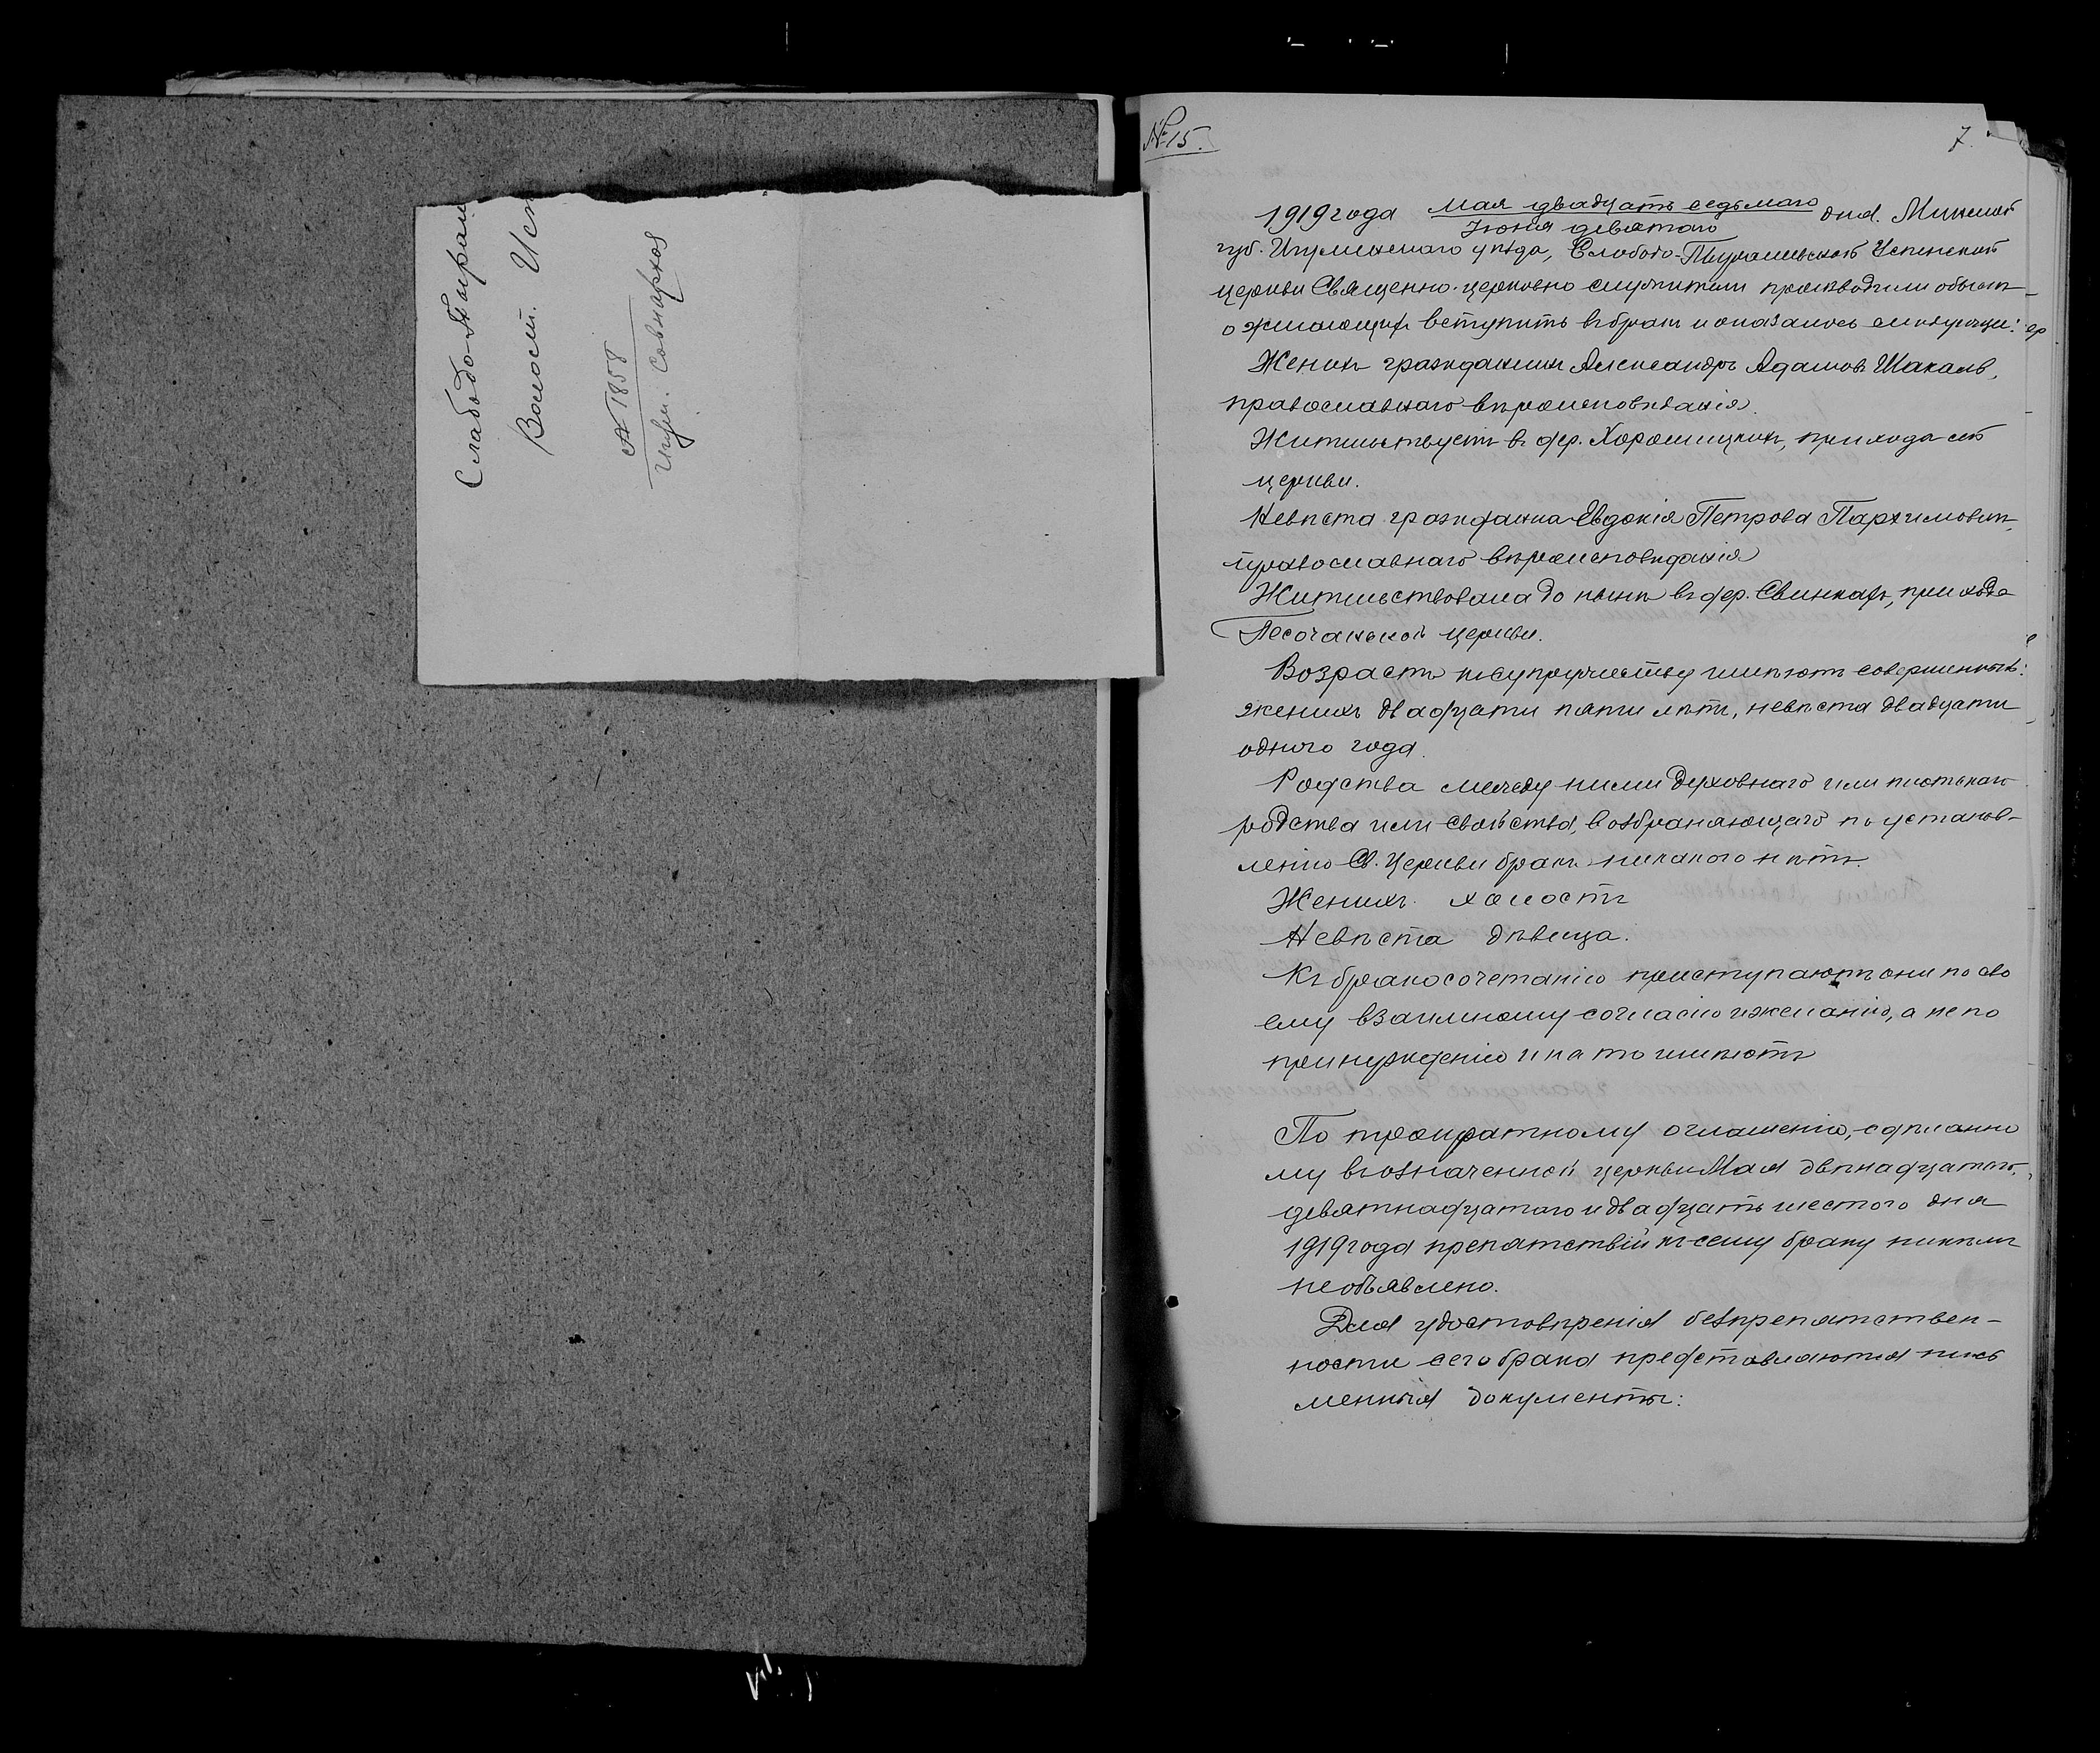 Слабодо-Пыраш
Волост. Исп
№ 1858
Игум. Совнархоз
№ 15.
7.
1919 года мая двадцать седьмого дня. Минской
Іюня девятаго
губ. Игуменскаго уѣзда, Слободо-Пырашевской Успенской
церкви Священно-церковно служители производили обыскъ
о желающихъ вступить въ бракъ и оказалось слѣдующее:
Женихъ гражданинъ Александръ Адамовъ Шакаль,
православнаго вѣроисповѣданія.
Жительствуетъ въ дер. Хоромицкихъ, прихода сей
церкви.
Невѣста гражданка Евдокія Петрова Пархимовичъ,
православнаго вѣроисповѣданія
Жительствовала до нынѣ въ дер. Свинкахъ, прихода
Песочанской церкви.
Возрастъ къ супружеству имѣютъ совершенный:
женихъ двадцати пяти лѣтъ, невѣста двадцати
одного года.
Родства между ними духовнаго или плотскаго
родства или свойства, возбраняющаго по установ-
ленію Св. Церкви бракъ никакого нѣтъ.
Женихъ холостъ
Невѣста дѣвица.
Къ бракосочетанію приступаютъ они по сво
ему взаимному согласію и желанію, а не по
принужденію и на то имѣютъ
По троекратному оглашенію, сдѣланно
му въ означенной церкви Мая двѣнадцатаго,
девятнадцатаго и двадцать шестого дня
1919 года препятствій къ сему браку никѣмъ
не объявлено.
Для удостовѣренія безпрепятствен-
ности сего брака представляются пись
менныя документы: